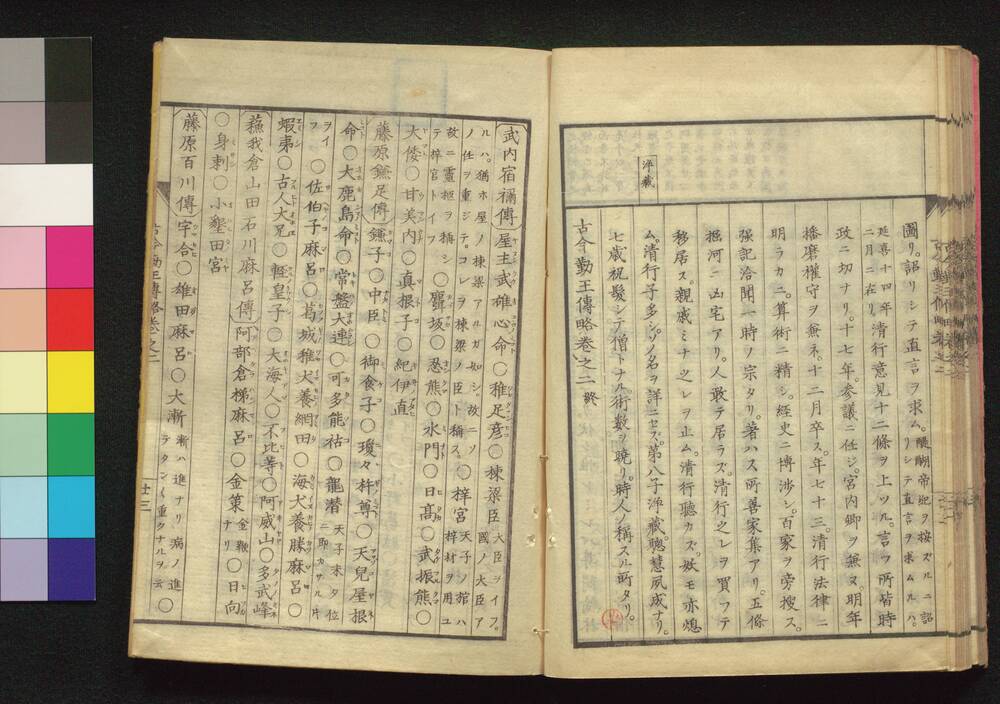 圖リ。詔リシテ直言ヲ求ム。醍醐帝紀ヲ按ズルニ詔リシテ直言ヲ求ムルハ。
延喜十四年二月ニ在リ。清行意見十二條ヲ上ツル。言フ所皆時
政ニ切ナリ。十七年。參議ニ任ジ。宮内卿ヲ兼ヌ。明年
播磨權守ヲ兼ネ。十二月卒ス。年七十三。清行法律ニ
明ラカニ。算術ニ精シ。經史ニ博渉シ。百家ヲ旁搜ス。
強記洽聞一時ノ宗タリ。著ハス所善家集アリ。五條
堀河ニ凶宅アリ。人敢テ居ラズ。清行之レヲ買フテ
移居ス。親戚ミナ之レヲ止ム。清行聽カズ。妖モ亦熄
ム。清行子多シ。ソノ名ヲ詳ニセズ。第八子淨藏。聰慧夙成ナリ。
淨藏
七歳祝髮シテ僧トナル。術數ヲ曉リ。時人ノ稱スル所タリ。
古今勤王傳略卷之二 終
武内宿禰傳 屋主武雄心命〇稚足彦〇棟梁臣 大臣ヲイフ。國ノ大臣ア
ルハ。猶ホ屋ノ棟梁アルガ如シ。故ニソノ任ヲ重ジテ。コレヲ棟梁ノ臣ト稱ス。〇梓宮 天子ノ棺ハ梓材ヲ用ユ
故ニ靈柩ヲ稱シテ梓官トイフ 〇麛坂〇忍熊〇水門〇日髙〇武振熊〇
大倭〇甘美内〇真根子〇紀伊直
藤原鎌足傳 鎌子〇中臣〇御食子〇瓊々杵尊〇天兒屋根
命〇大鹿島命〇常盤大連〇可多能祜〇龍潜 天子未タ位ニ即カサル片
ヲイフ 〇佐伯子麻呂〇葛城稚犬養網田〇海犬養勝麻呂〇
蝦夷〇古人大兄〇輕皇子〇大海人〇不比等〇阿威山〇多武峰
蘓我倉山田石川麻呂傳 阿部倉梯麻呂〇金策 金鞭ナリ 〇日向
〇身刺〇小墾田宮
藤原百川傳 宇合〇雄田麻呂〇大漸 漸ハ進ナリ病ノ進テタンノ重クナルヲ云 〇
古今勤王傳略卷之二
廿三